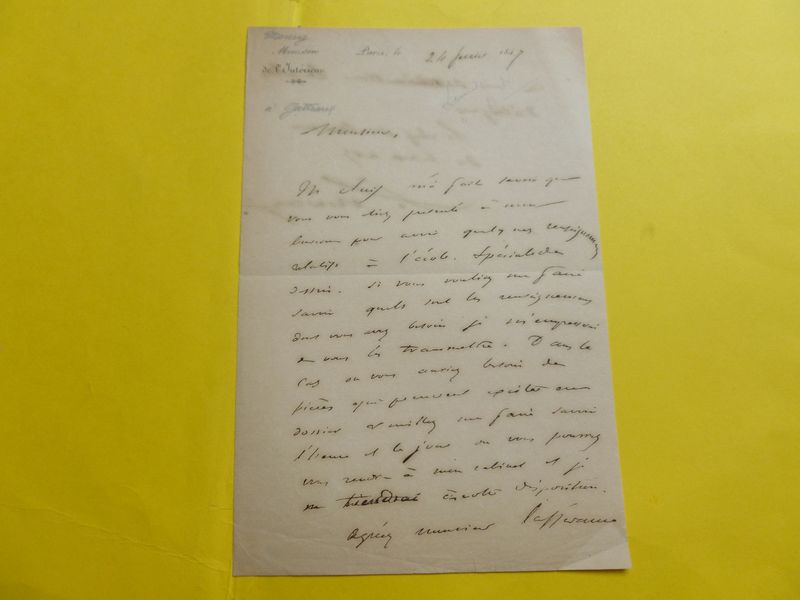 Ministère
de l'Intérieur
Paris, le 24 février 18 7
à
Monsieur,
M m'a fait savoir que
vous vous êtes présenté à mon
bureau pour avoir quelques renseignements
relatifs à l'école Spéciale de
dessin. Si vous vouliez me faire
savoir quels sont les renseignements
dont vous avez besoin je m'empresserai
de vous les transmettre. Dans le
cas où vous auriez besoin de
pièces qui peuvent exister au
dossier veuillez me faire savoir
l'heure et le jour où vous pourrez
vous rendre à mon cabinet et je
me tiendrai à votre disposition.
Agréez monsieur l'assurance